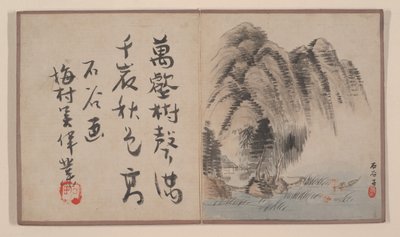 萬壑樹聲滿
千崖秋色高
石谷画
梅村吳偉業
石谷子